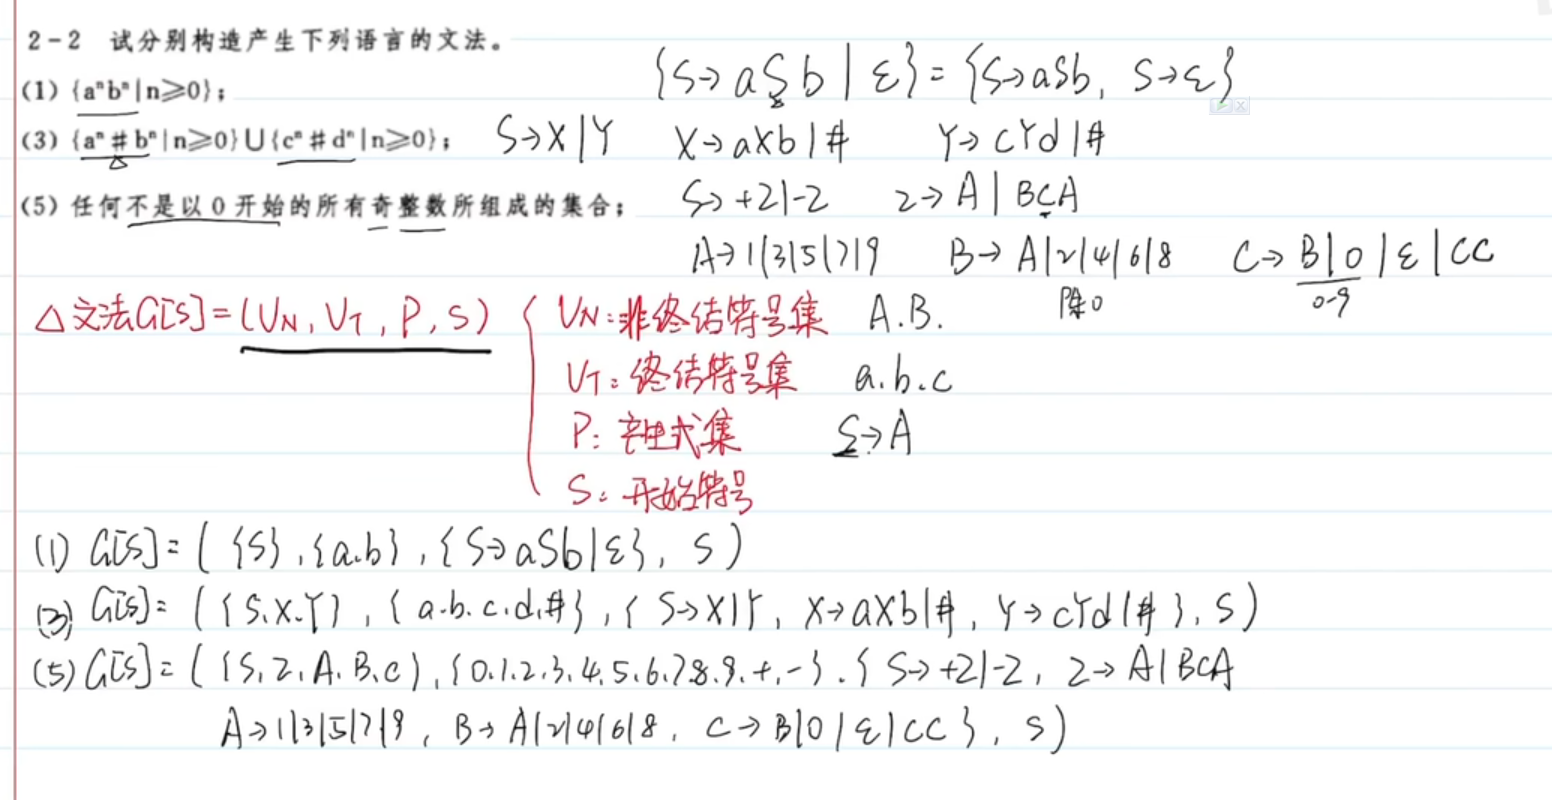 2-2 试分别构造产生下列语言的文法。
{S→aSb|ε}={S→aSb, S→ε}
(1) {aⁿbⁿ|n≥0};
(3) {aⁿ#bⁿ|n≥0}∪{cⁿ#dⁿ|n≥0}; S→X|Y X→aXb|# Y→cYd|#
(5) 任何不是以0开始的所有奇整数所组成的集合; S→+Z|-Z Z→A|BCA
A→1|3|5|7|9 B→A|2|4|6|8 C→B|0|ε|CC
除0 0-9
△文法G[S]=(U_N, V_T, P, S) { U_N:非终结符号集 A.B.
V_T:终结符号集 a.b.c
P:产生式集 S→A
S:开始符号
(1) G[S]=({S},{a.b},{S→aSb|ε}, S)
(3) G[S]=({S.X.Y},{a.b.c.d.#},{S→X|Y, X→aXb|#, Y→cYd|#}, S)
(5) G[S]=({S,Z,A.B.C},{0.1.2.3.4.5.6.7.8.9.+.-}.{S→+Z|-Z, Z→A|BCA
A→1|3|5|7|9, B→A|2|4|6|8, C→B|0|ε|CC}, S)